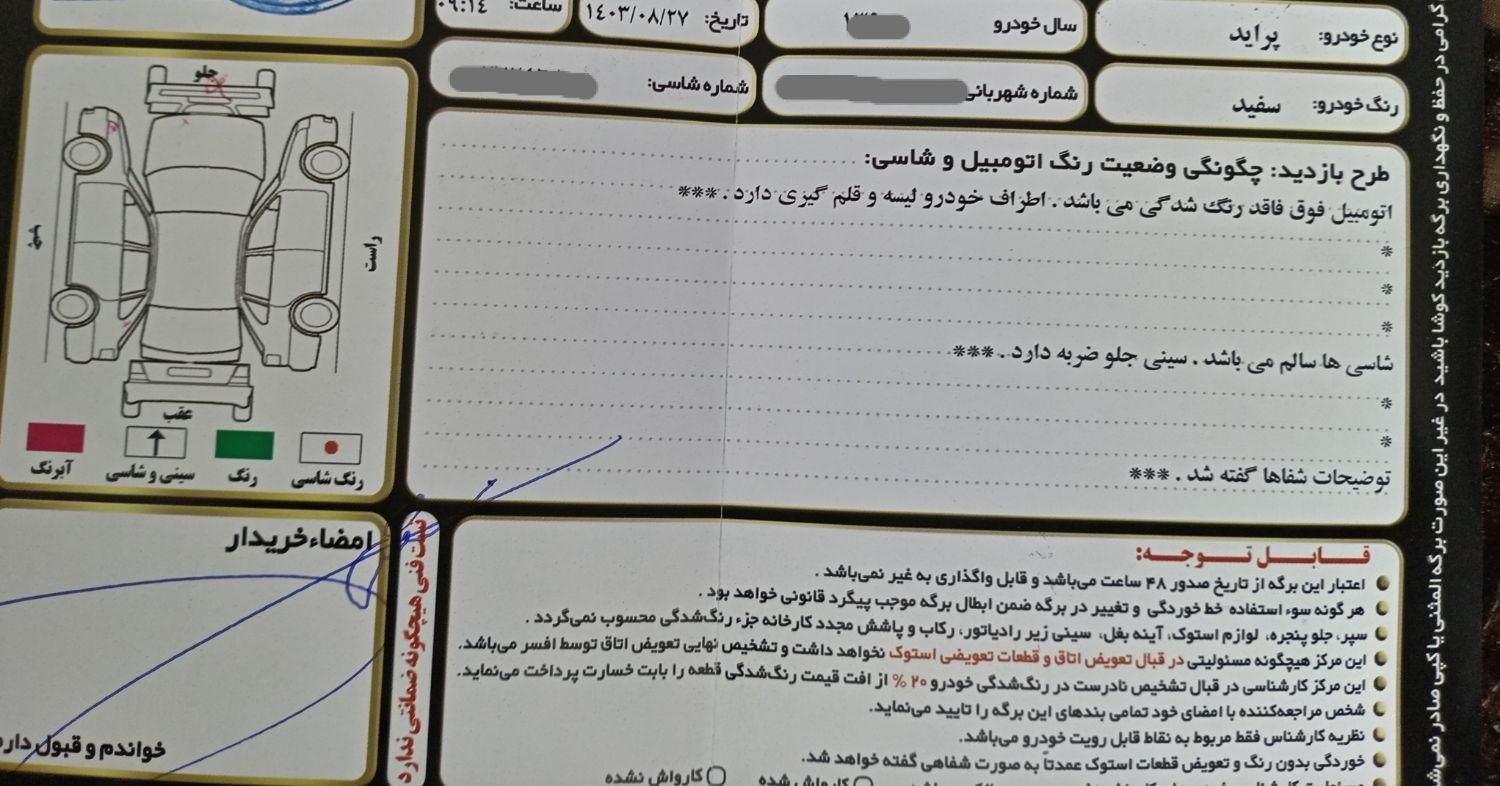 نوع خودرو: پراید
سال خودرو
تاریخ: ۱۴۰۳/۰۸/۲۷
ساعت: ۰۹:۱۴
رنگ خودرو: سفید
شماره شهربانی
شماره شاسی:
طرح بازدید: چگونگی وضعیت رنگ اتومبیل و شاسی:
اتومبیل فوق فاقد رنگ شدگی می باشد . اطراف خودرو لیسه و قلم گیری دارد . ***
*
*
*
شاسی ها سالم می باشد . سینی جلو ضربه دارد . ***
*
*
توضیحات شفاها گفته شد . ***
جلو
راست
عقب
رنگ شاسی
رنگ
سینی و شاسی
آبرنگ
قابل توجه:
اعتبار این برگه از تاریخ صدور ۴۸ ساعت می‌باشد و قابل واگذاری به غیر نمی‌باشد .
هر گونه سوء استفاده خط خوردگی و تغییر در برگه ضمن ابطال برگه موجب پیگرد قانونی خواهد بود .
سپر، جلو پنجره، لوازم استوک، آینه بغل، سینی زیر رادیاتور، رکاب و پاشش مجدد کارخانه جزء رنگ‌شدگی محسوب نمی‌گردد .
این مرکز هیچگونه مسئولیتی در قبال تعویض اتاق و قطعات تعویضی استوک نخواهد داشت و تشخیص نهایی تعویض اتاق توسط افسر می‌باشد.
این مرکز کارشناسی در قبال تشخیص نادرست در رنگ‌شدگی خودرو ۲۰ % از افت قیمت رنگ‌شدگی قطعه را بابت خسارت پرداخت می‌نماید.
شخص مراجعه‌کننده با امضای خود تمامی بندهای این برگه را تایید می‌نماید.
نظریه کارشناس فقط مربوط به نقاط قابل رویت خودرو می‌باشد.
خوردگی بدون رنگ و تعویض قطعات استوک عمدتاً به صورت شفاهی گفته خواهد شد.
کارواش شده
کارواش نشده
تست فنی هیچگونه ضمانتی ندارد
امضاء خریدار
خواندم و قبول دارم
گرامی در حفظ و نگهداری برگه بازدید کوشا باشید در غیر این صورت برگه المثنی یا کپی صادر نمی‌شود